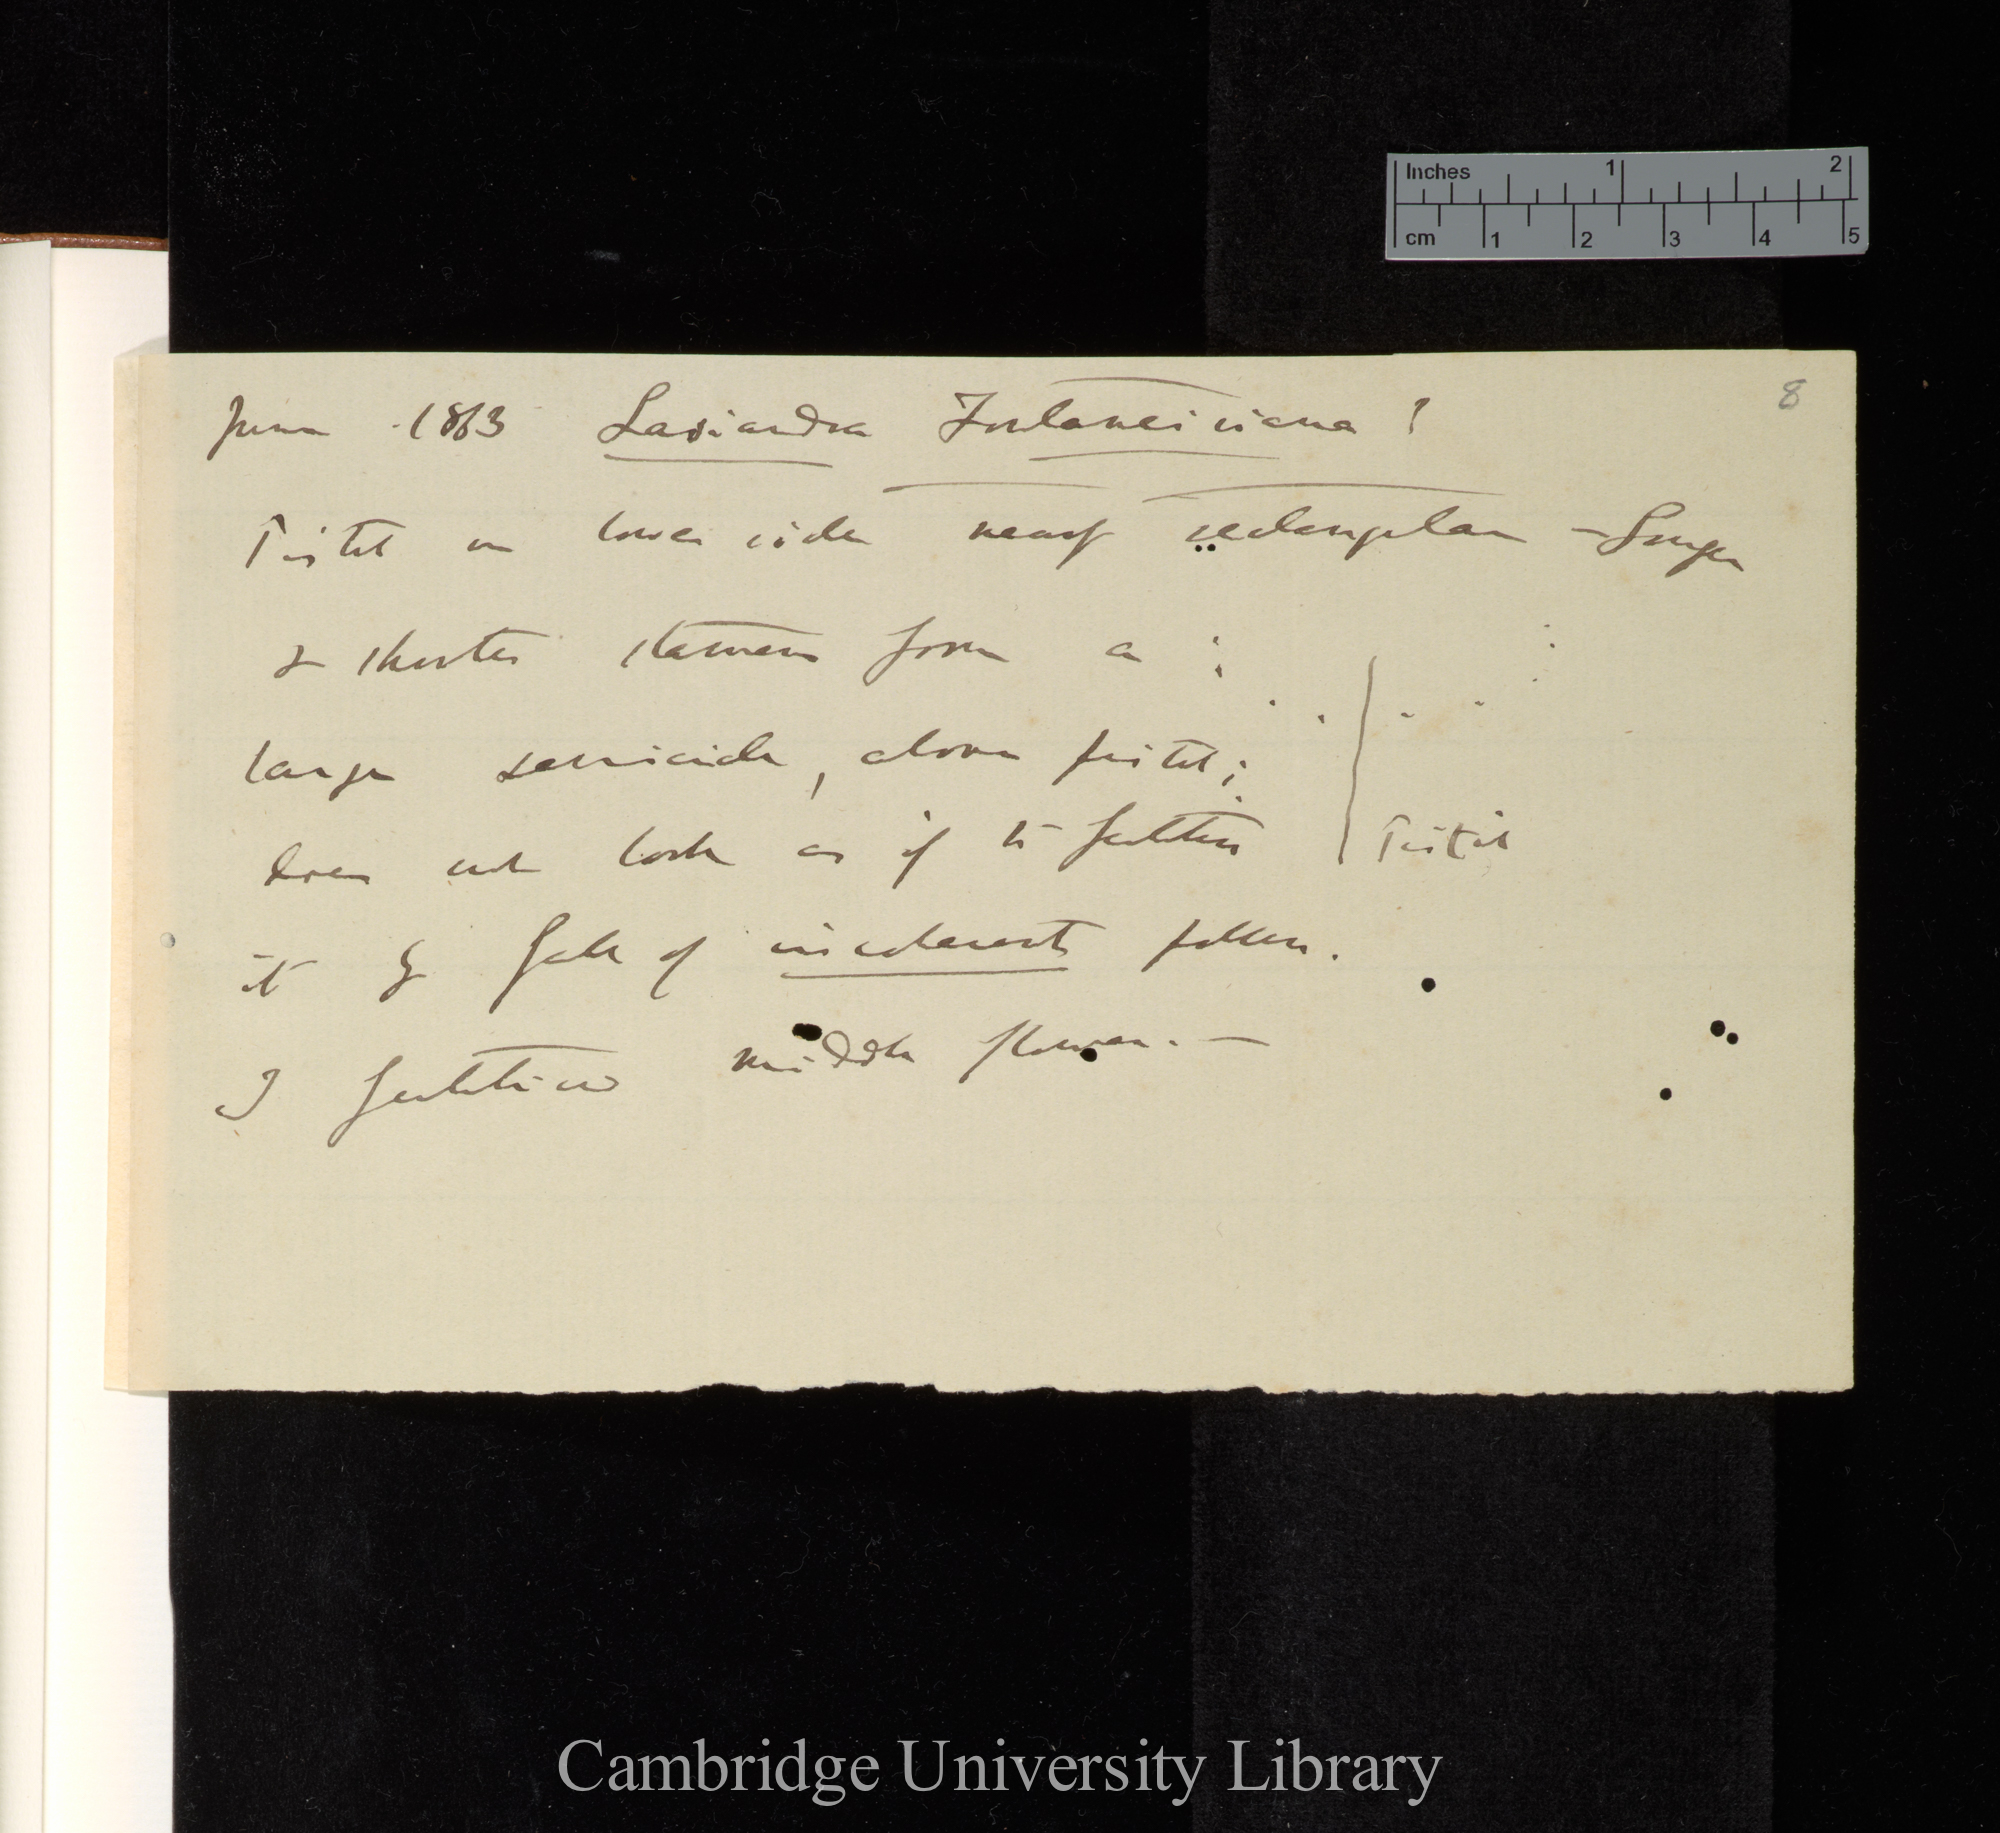 8
June 1863 Lasiandra Fontanesiana?
Pistil on lower side nearly rectangular – Longer
& shorter stamens form a
large semicircle, above pistil;
Pistil
does not look as if to fertilise
it by fall of incoherent pollen.
I fertilised middle flower. —
Inches 1 2
cm 1 2 3 4 5
Cambridge University Library